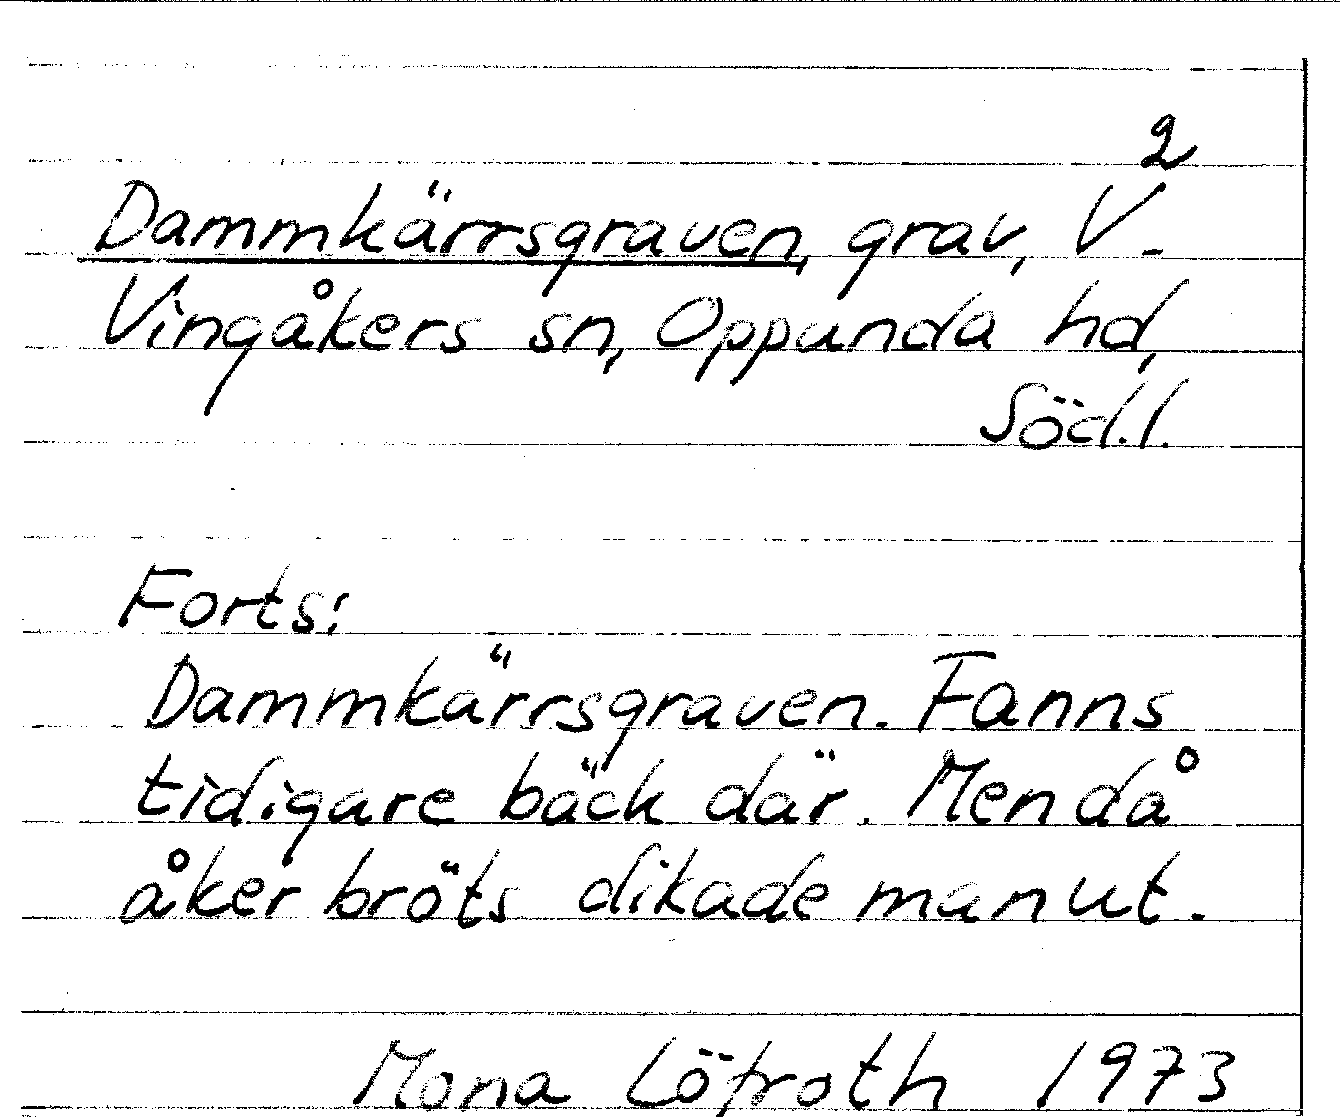 2
Dammkärrsgraven, grav, V-
Vingåkers sn, Oppunda hd,
Söd.l.
Forts:
Dammkärrsgraven. Fanns
tidigare bäck där. Men då
åker bröts dikade man ut.
Mona Löfroth 1973